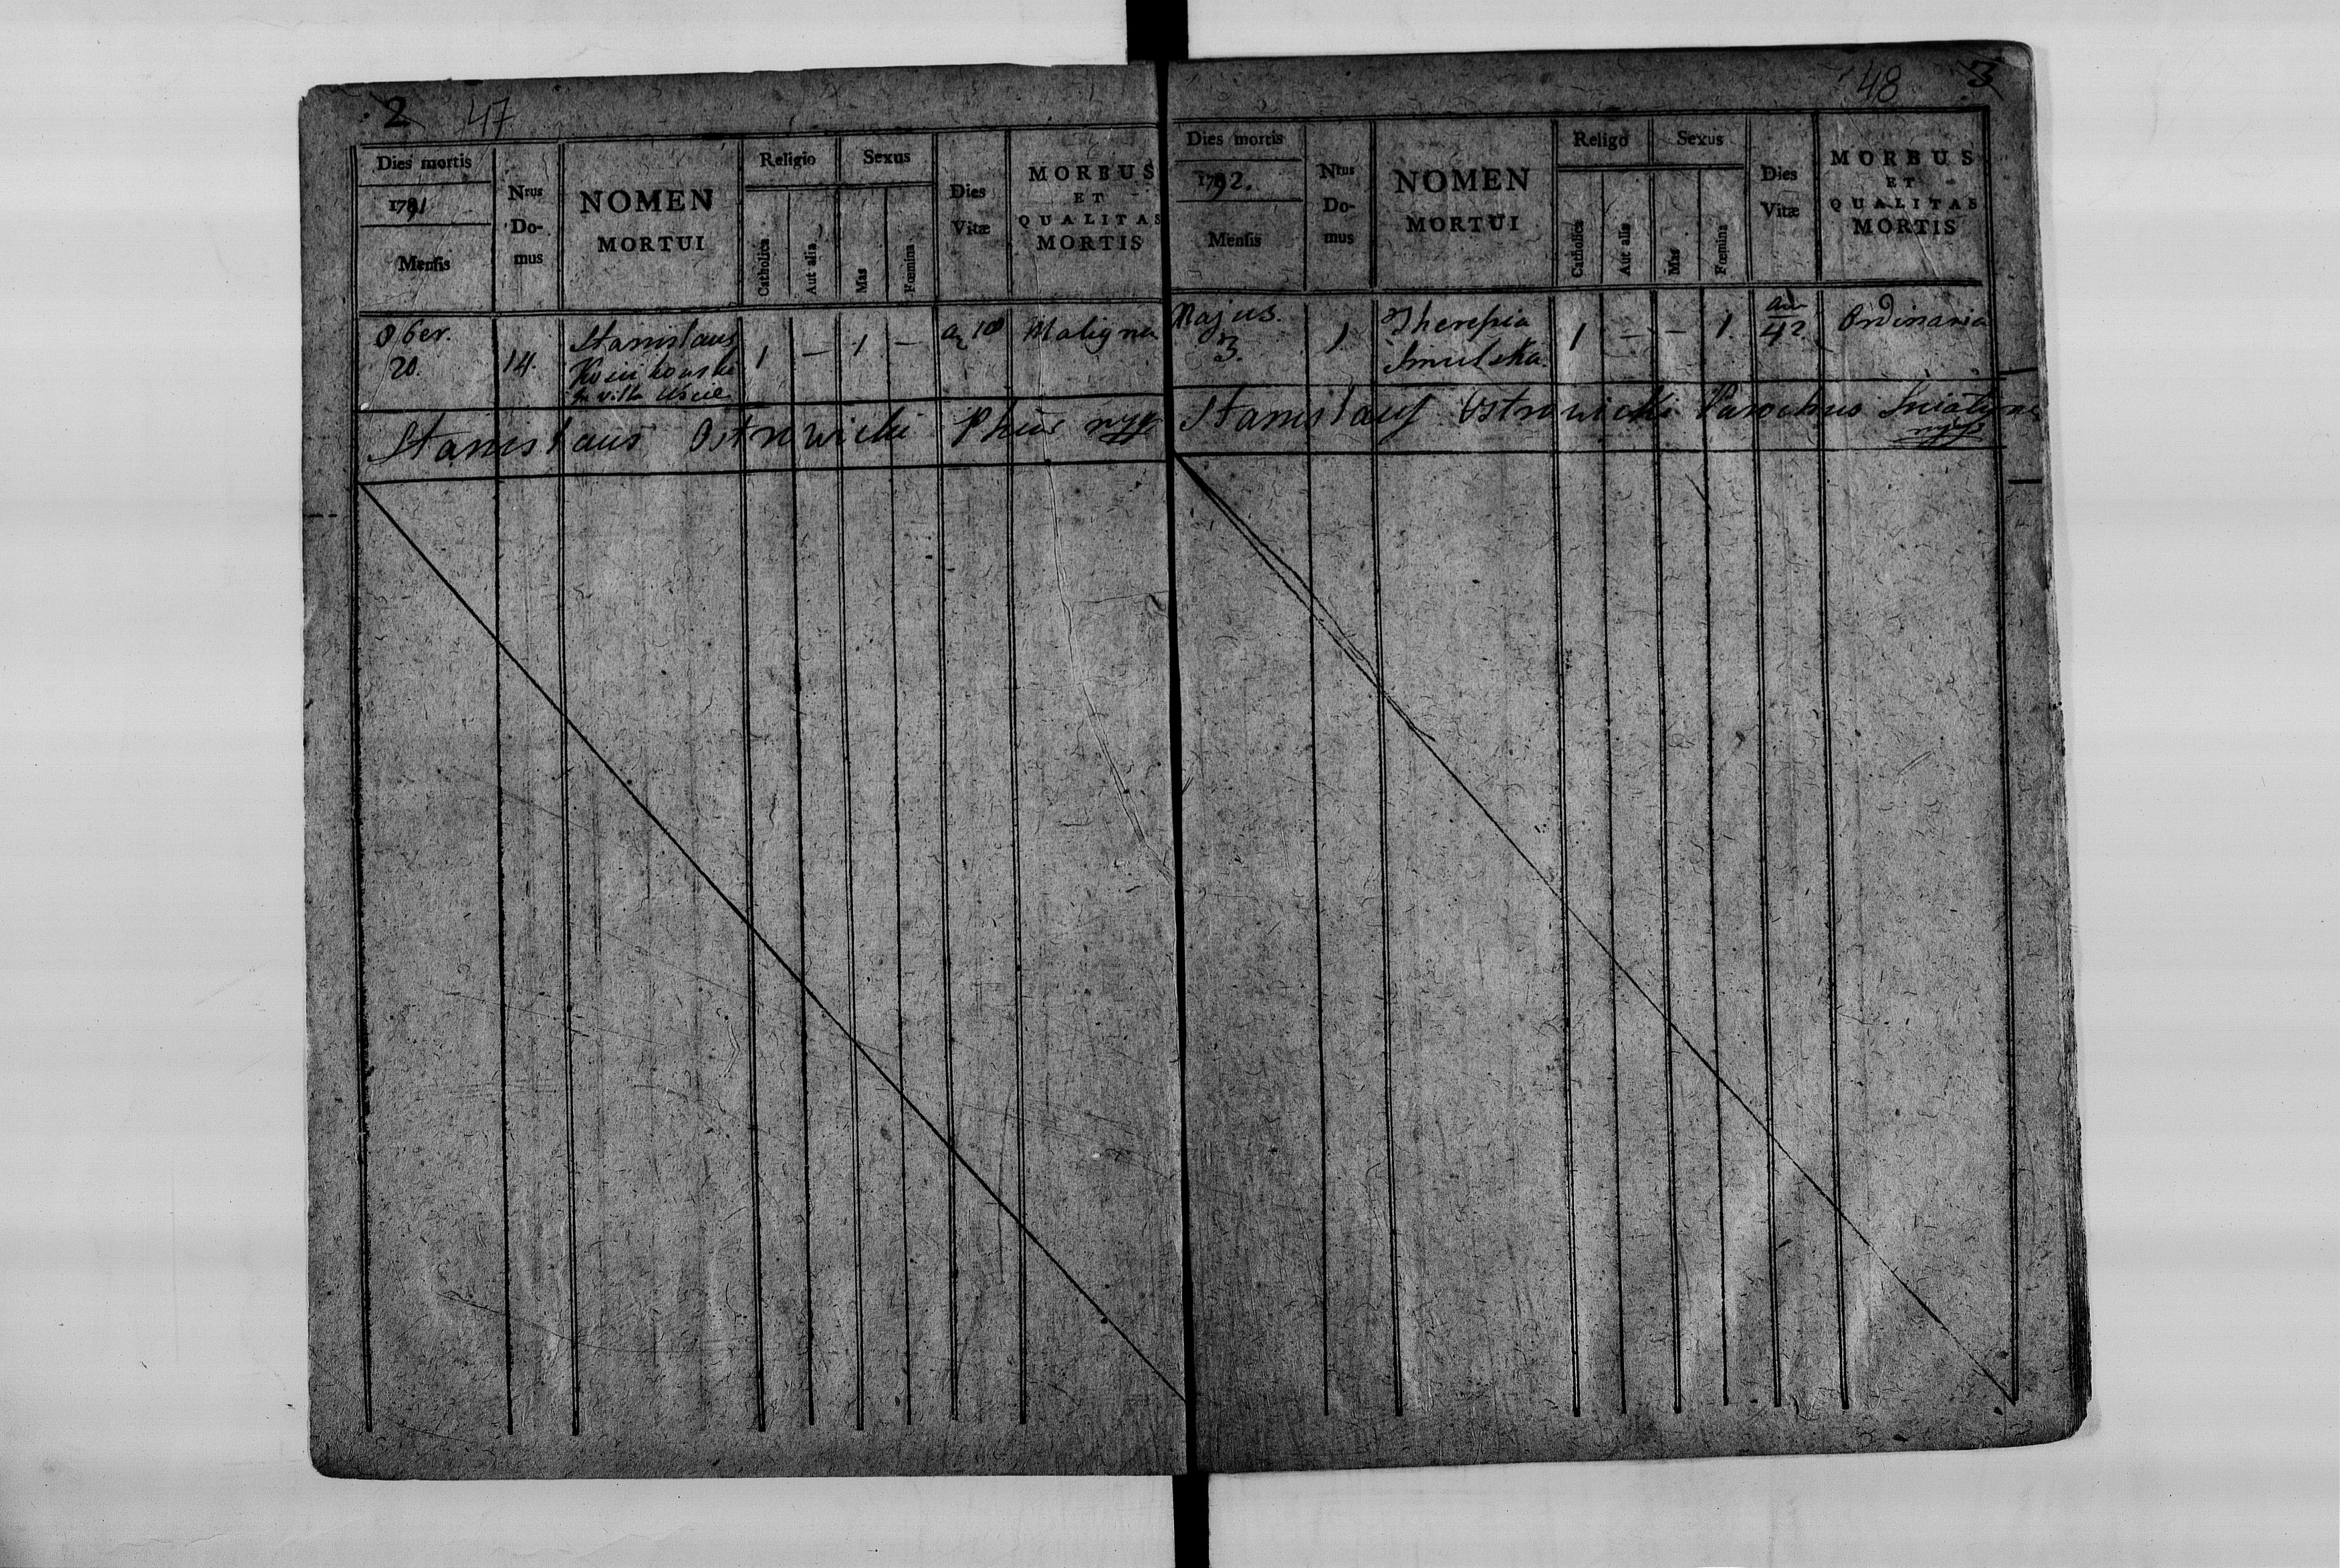 2 47
Dies mortis
1791
Mensis
Nrus
Do-
mus
NOMEN
MORTUI
Religio
Catholica
Aut alia
Sexus
Mas
Fœmina
Dies
Vitæ
MORBUS
ET
QUALITAS
MORTIS
8ber.
20.
14.
Stanislaus
in villa Uście
1 — 1 —
10
Maligna
Stanislaus Ostrowicki
48 3
Dies mortis
1792.
Mensis
Ntus
Do-
mus
NOMEN
MORTUI
Religo
Catholica
Aut alia
Sexus
Mas
Fœmina
Dies
Vitæ
MORBUS
ET
QUALITAS
MORTIS
Majus.
3.
1
Theresia
Smulska.
1 — — 1.
an
42
Ordinaria
Stanislaus Ostrowicki Parochus